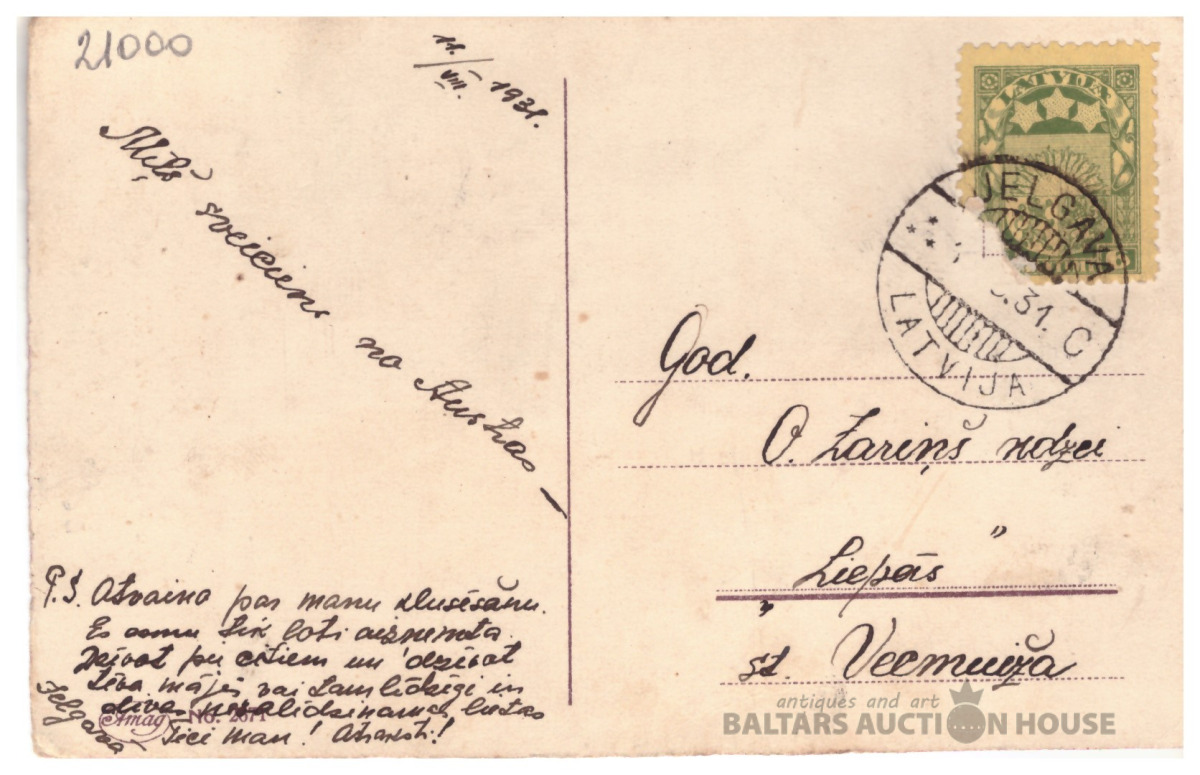 21000
11./VIII. 1931.
Mīļš sveiciens no Austras —
P.S. Atvaino par manu klusēšanu.
Es esmu tik ļoti aizņemta.
Dzīvot pie citiem un dzīvot
tēva mājās vai tamlīdzīgi ir
divas nesalīdzinamas lietas
Tici man! Atraksti!
Jelgavā
Amag No. 2671
LATVIJA
JELGAVA
31. C
LATVIJA
God.
O. Zariņš kdzei
"Liepās"
st. Vecmuiža
antiques and art
BALTARS AUCTION HOUSE